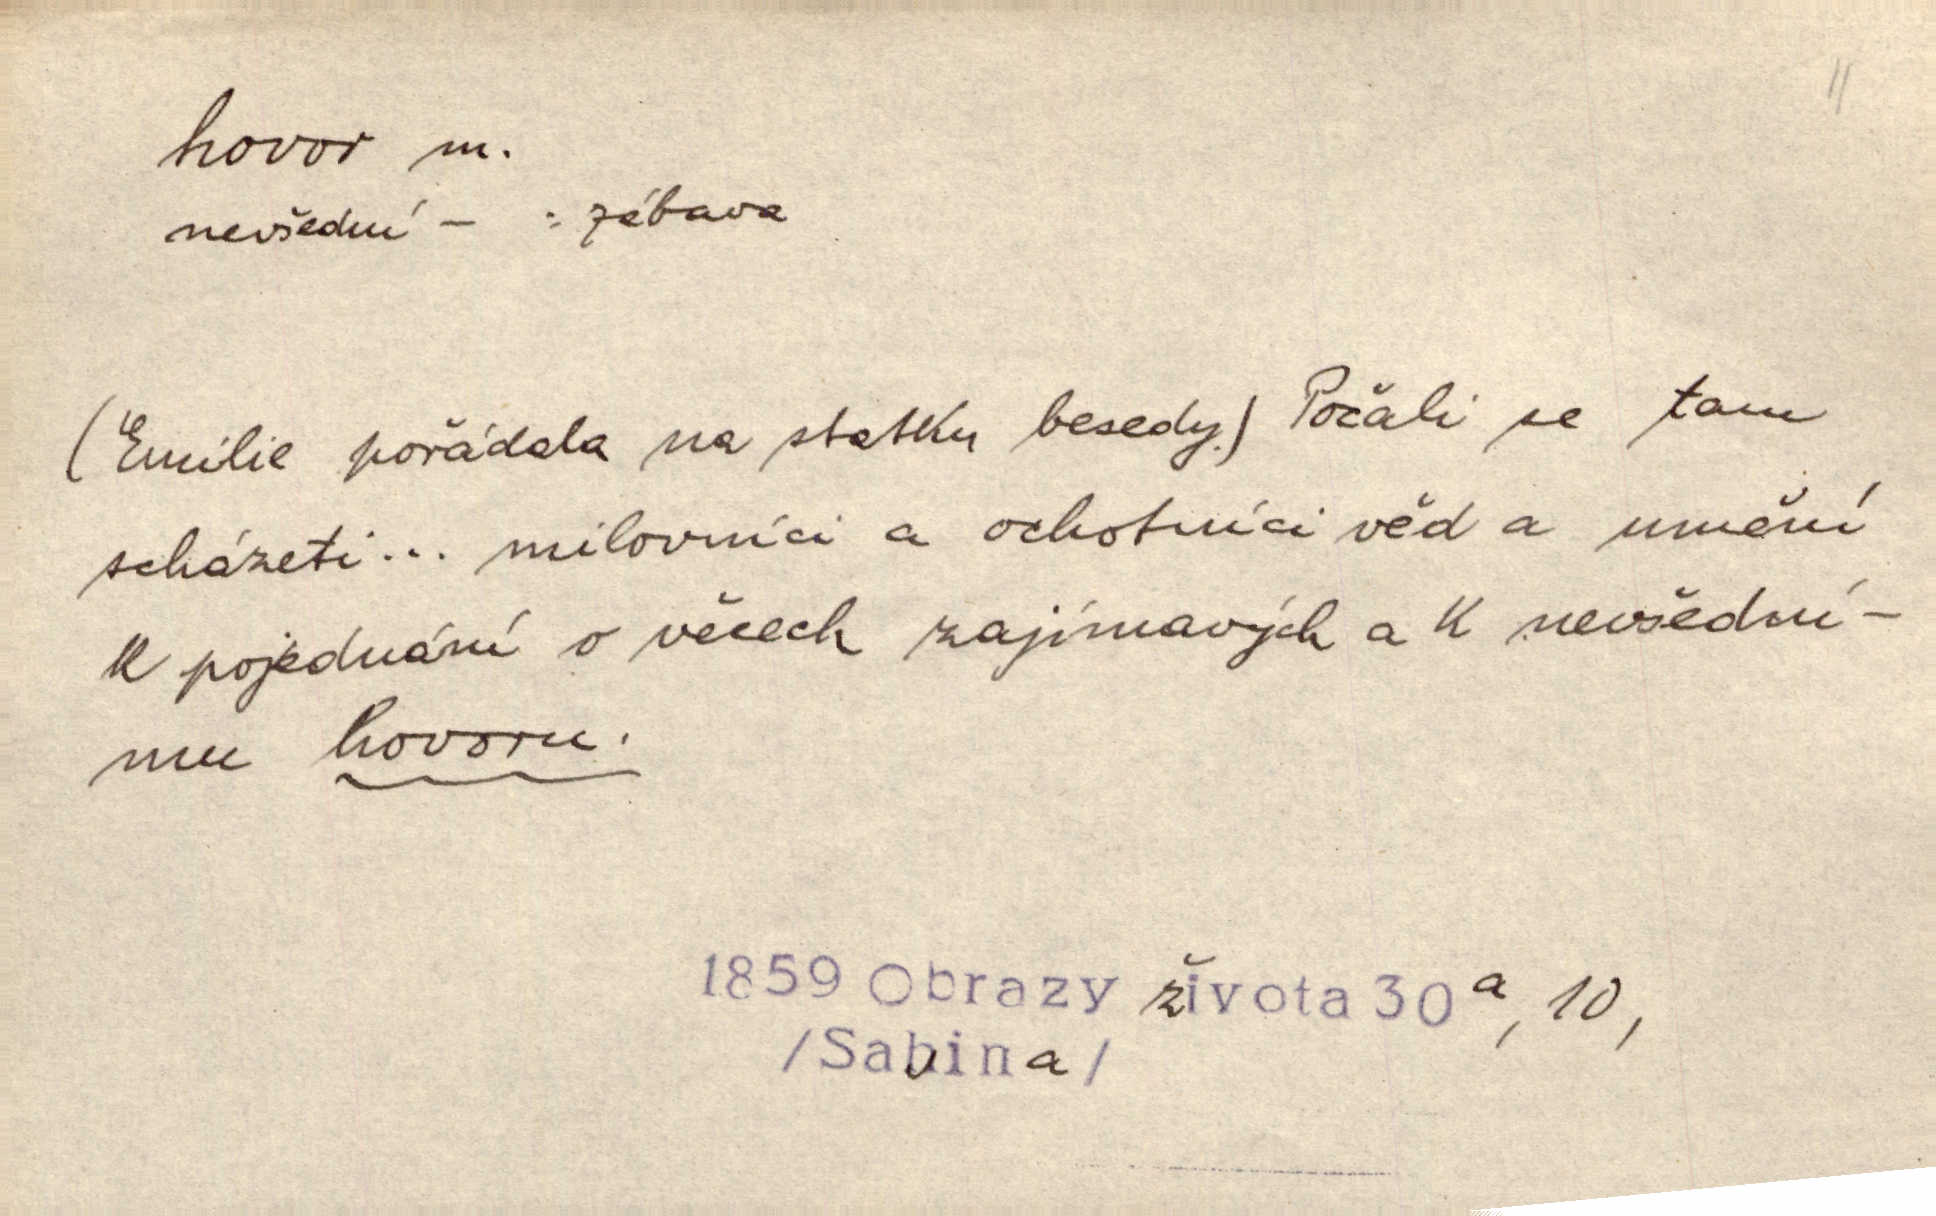 11
hovor m.
nevšední – : zábava
(Emilie pořádala na statku besedy.) Počali se tam
scházeti... milovníci a ochotníci věd a umění
k pojednání o věcech zajímavých a k nevšední-
mu hovoru.
1859 Obrazy života 30 a, 10,
/Sabina/